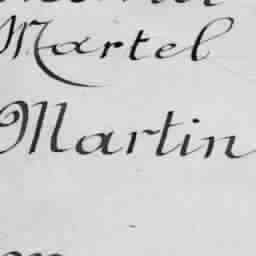 Martel
Martin